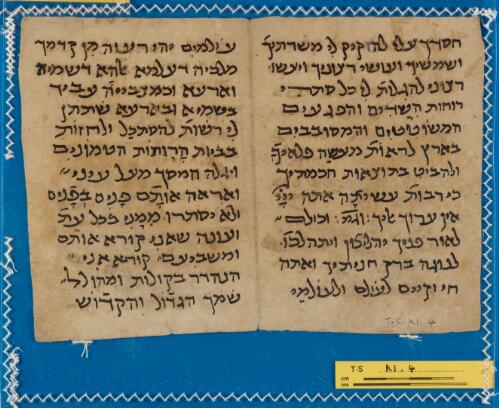 חסדך עלי להזקיק לי משרתיך
ושמשיך ועושי רצונך ויעשו
רצוני להגלות לי כל סתרי
רוחות השדים והפגעים
המשוטטים והמסובבים
בארץ לראות מעשה פלאיך
ולהביט בתוצאות חכמתיך
כי רבות עשית אתה
אין ערוך אליך
לאור פניך יהליצון
לנוגה ברק חניתיך ואתה
חי וקיים לעולם ולעולמי
עולמים יהי רעוה מן קדמך
מלכיה דעלמא אלהא דשמיא
וארעא וכמצבייה עביד
בשמיא ובארעא שתתן
לי רשות להסתכל ולחזות
בבריות הרוחות הטמונים
ויגלה המסך מעל עיני
ואראה אותם פנים בפנים
ולא יסתרו ממני בכל עת
ועונה שאני קורא אותם
ומשביעם קורא אני
הנהדר בקולות ומהולל
שמך הגדול והקדוש
T-S. K1. 4
T-S K1.4
cm
ins